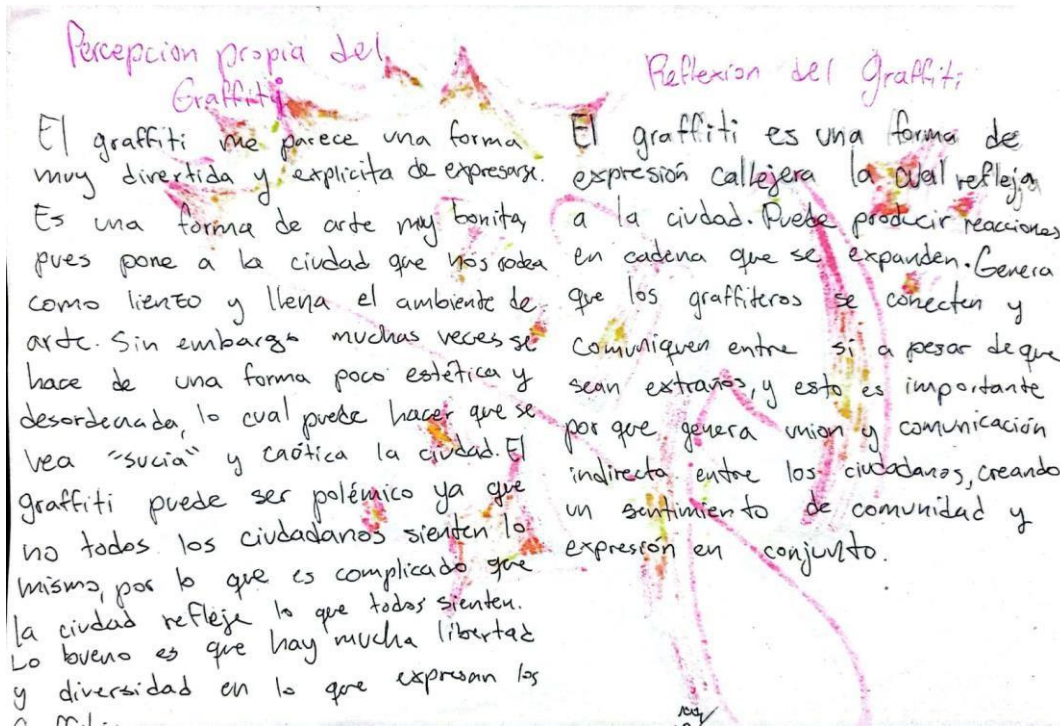 Percepcion propia del
Graffiti
El graffiti me parece una forma
muy divertida y explicita de expresarse.
Es una forma de arte muy bonita,
pues pone a la ciudad que nos rodea
como lienzo y llena el ambiente de
arte. Sin embargo muchas veces se
hace de una forma poco estética y
desordenada, lo cual puede hacer que se
vea "sucia" y caótica la ciudad. El
graffiti puede ser polémico ya que
no todos los ciudadanos sienten lo
mismo, por lo que es complicado que
la ciudad refleje lo que todos sienten.
Lo bueno es que hay mucha libertad
y diversidad en lo que expresan los
Reflexion del Graffiti
El graffiti es una forma de
expresión callejera la cual refleja
a la ciudad. Puede producir reacciones
en cadena que se expanden. Genera
que los graffiteros se conecten y
comuniquen entre si a pesar de que
sean extraños, y esto es importante
por que genera union y comunicación
indirecta entre los ciudadanos, creando
un sentimiento de comunidad y
expresión en conjunto.